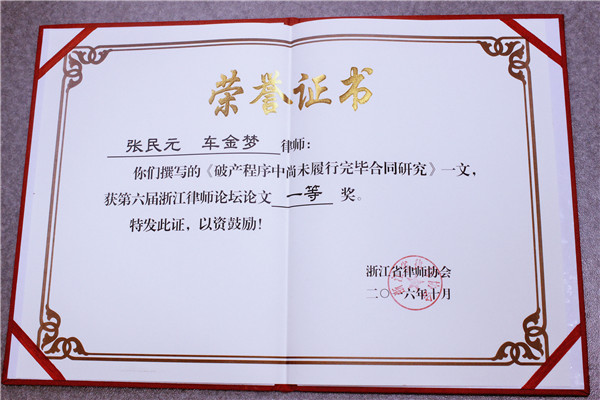 荣誉证书
张民元 车金梦 律师：
你们撰写的《破产程序中尚未履行完毕合同研究》一文，
获第六届浙江律师论坛论文 一等 奖。
特发此证，以资鼓励！
浙江省律师协会
二〇一六年十月